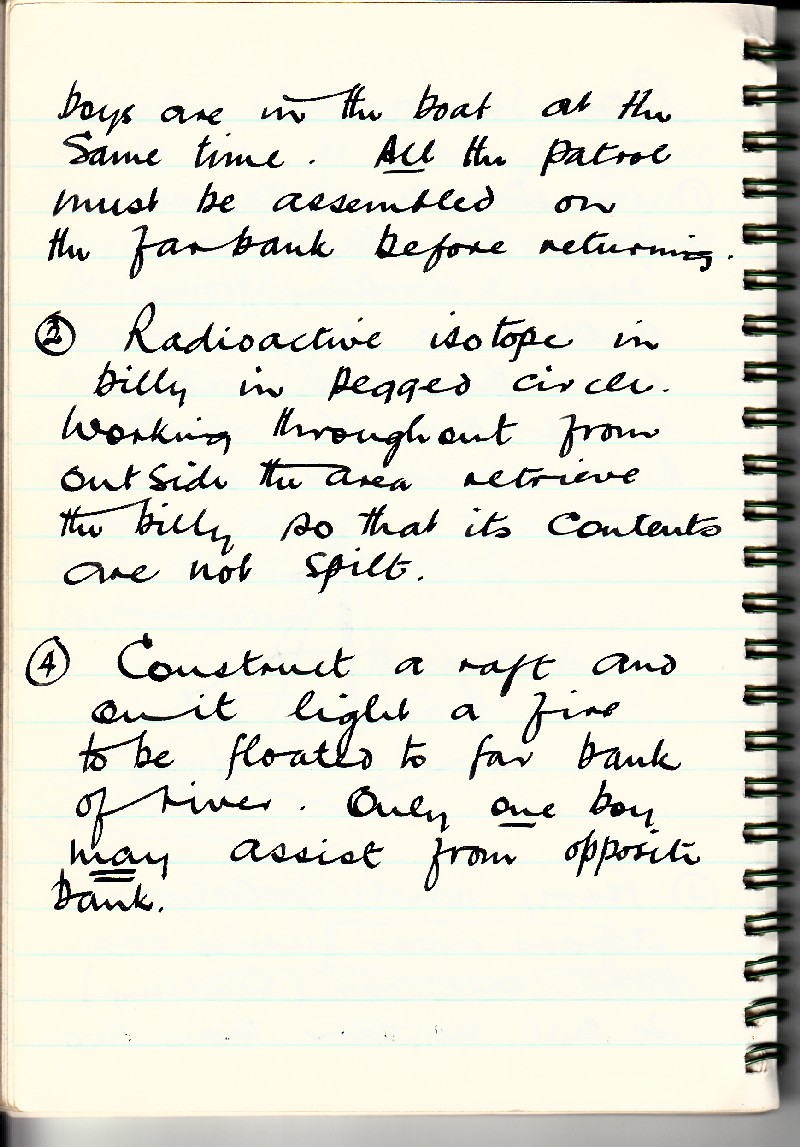 boys are in the boat at the
Same time. All the patrol
must be assembled on
the far bank before returning.
② Radioactive isotope in
billy in pegged circle.
Working throughout from
outside the area retrieve
the billy so that its contents
are not spilt.
④ Construct a raft and
on it light a fire
to be floated to far bank
of river. Only one boy
may assist from opposite
bank.